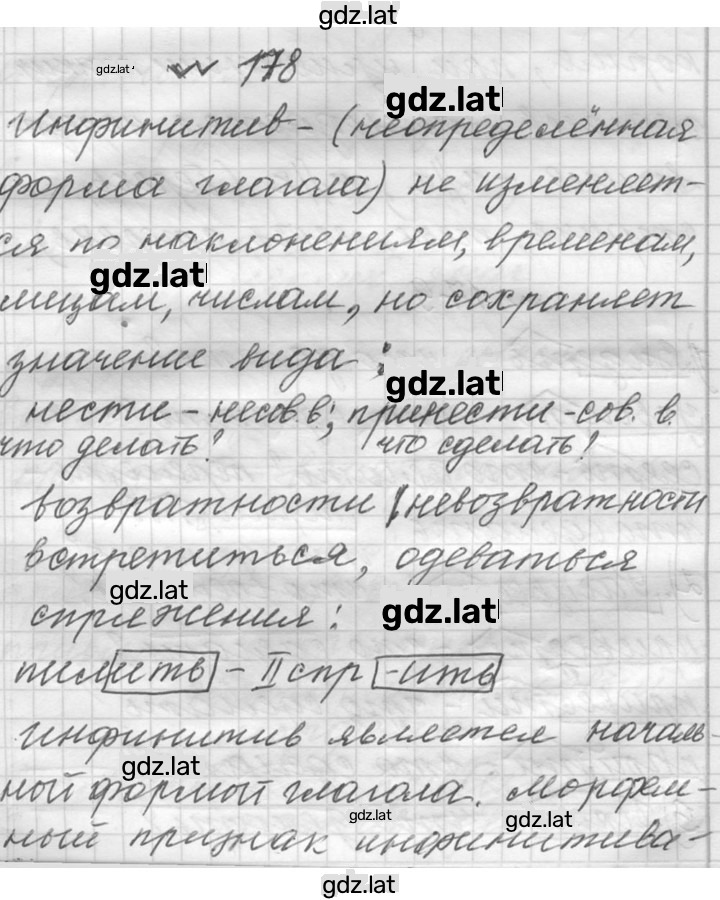 gdz.lat
gdz.lat
№ 178
gdz.lat
Инфинитив – (неопределённая
форма глагола) не изменяет-
ся по наклонениям, временам,
gdz.lat
лицам, числам, но сохраняет
значение вида:
gdz.lat
нести – несов. в; принести – сов. в.
что делать? что сделать?
возвратности / невозвратности
встретиться, одеваться
gdz.lat
спряжения:
gdz.lat
пилить – II спр -ить
Инфинитив является началь-
gdz.lat
ной формой глагола. Морфем-
gdz.lat
gdz.lat
ный признак инфинитива –
gdz.lat